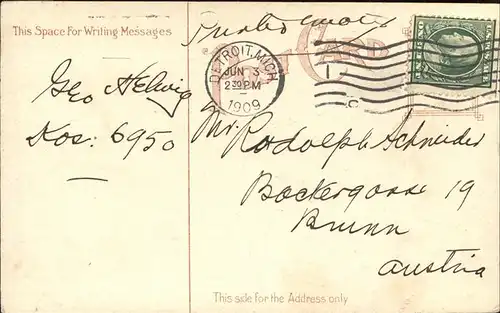 This Space For Writing Messages
Printed matter
POST CARD
DETROIT, MICH.
JUN 3
2 30 PM
1909
Geo Helwig
Kos: 6950
Mr. Rodolph Schneider
Backergasse 19
Brunn
Austria
This side for the Address only